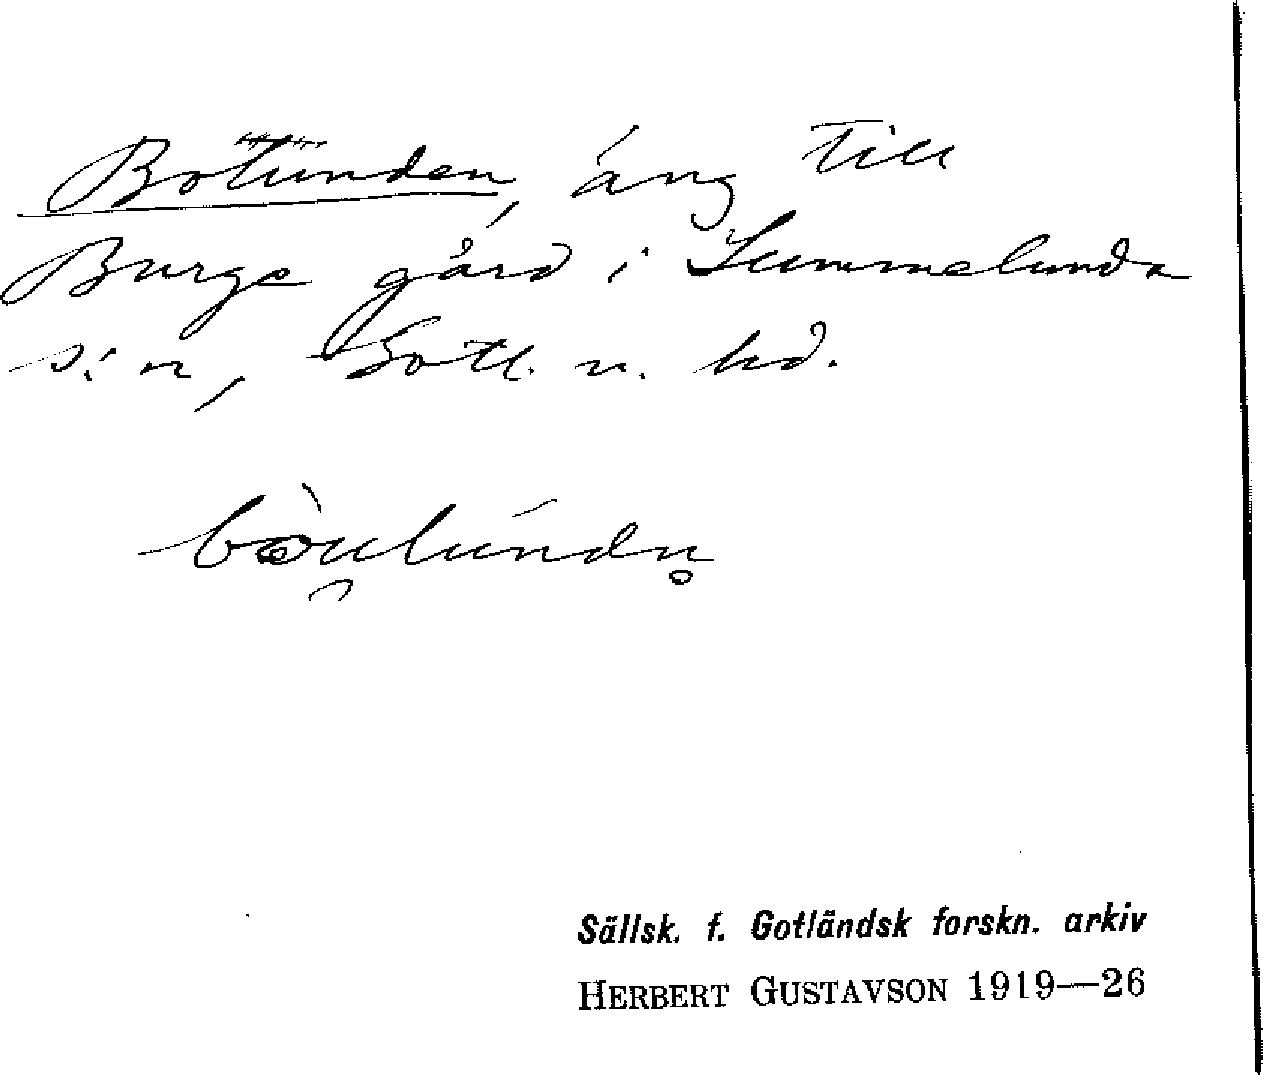 Botünden, äng till
Burge gård i Lummelunda
s:n, Gotl. n. hd.
Sällsk. f. Gotländsk forskn. arkiv
HERBERT GUSTAVSON 1919—26